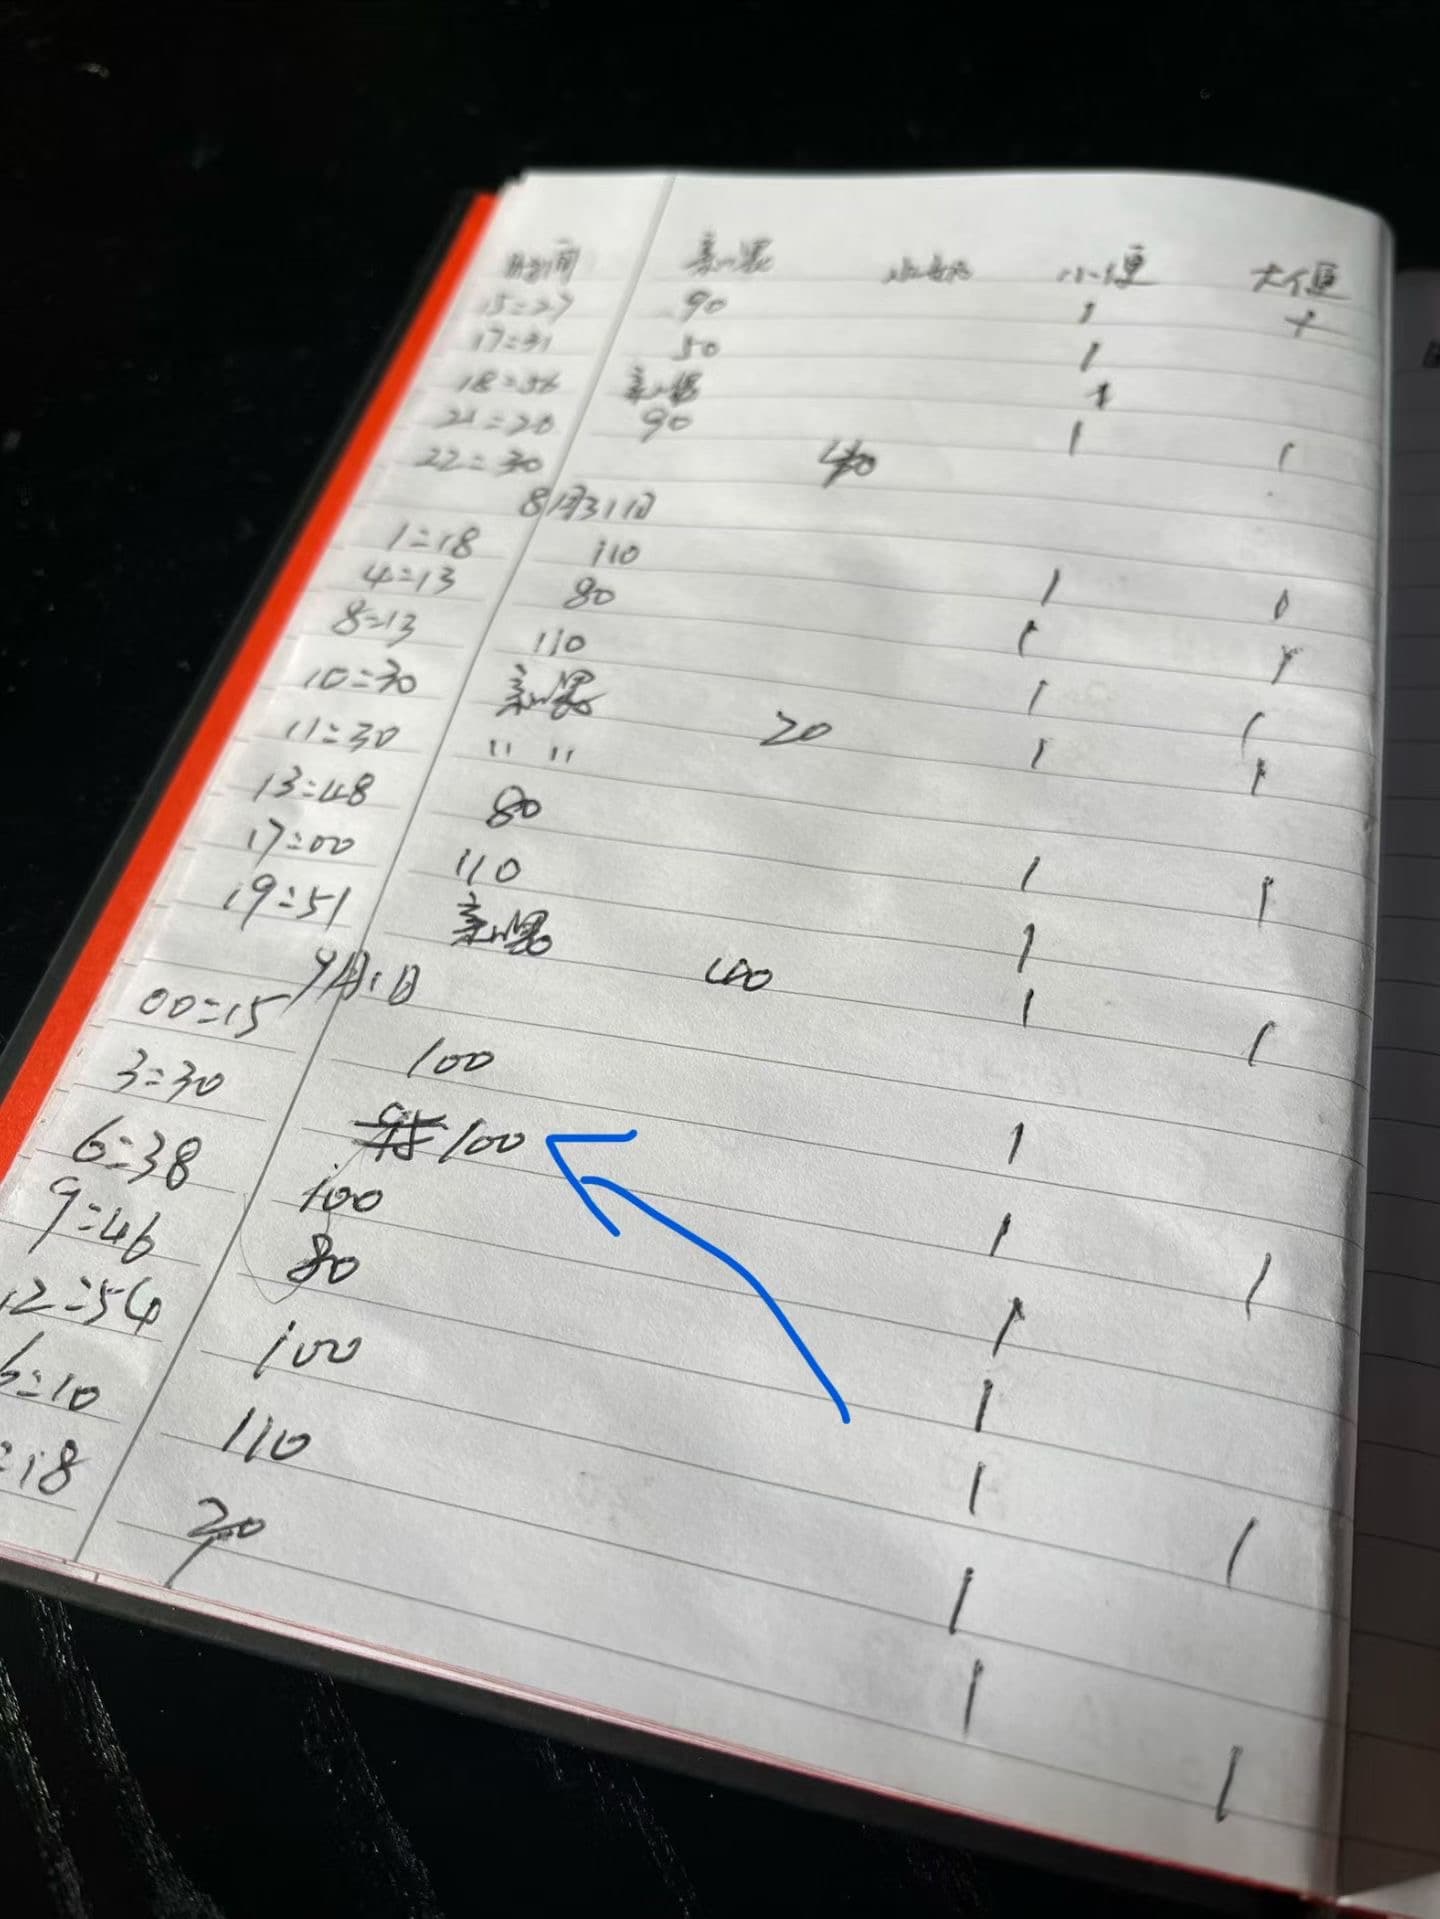 时间 亲喂 水奶 小便 大便
15:27 90 1 1
17:31 50 1
18:56 亲喂 1
21:20 90 1 1
22:30 40
8月31日
1:18 110 1 1
4:13 80 1 1
8:13 110 1 1
10:30 亲喂 20 1 1
11:30 " "
13:48 80 1 1
17:00 110 1
19:51 亲喂 1 1
9月1日
00:15 100 1
3:30 100 1 1
6:38 100 1
9:46 80 1
12:54 100 1 1
6:10 110 1
:18 1 1